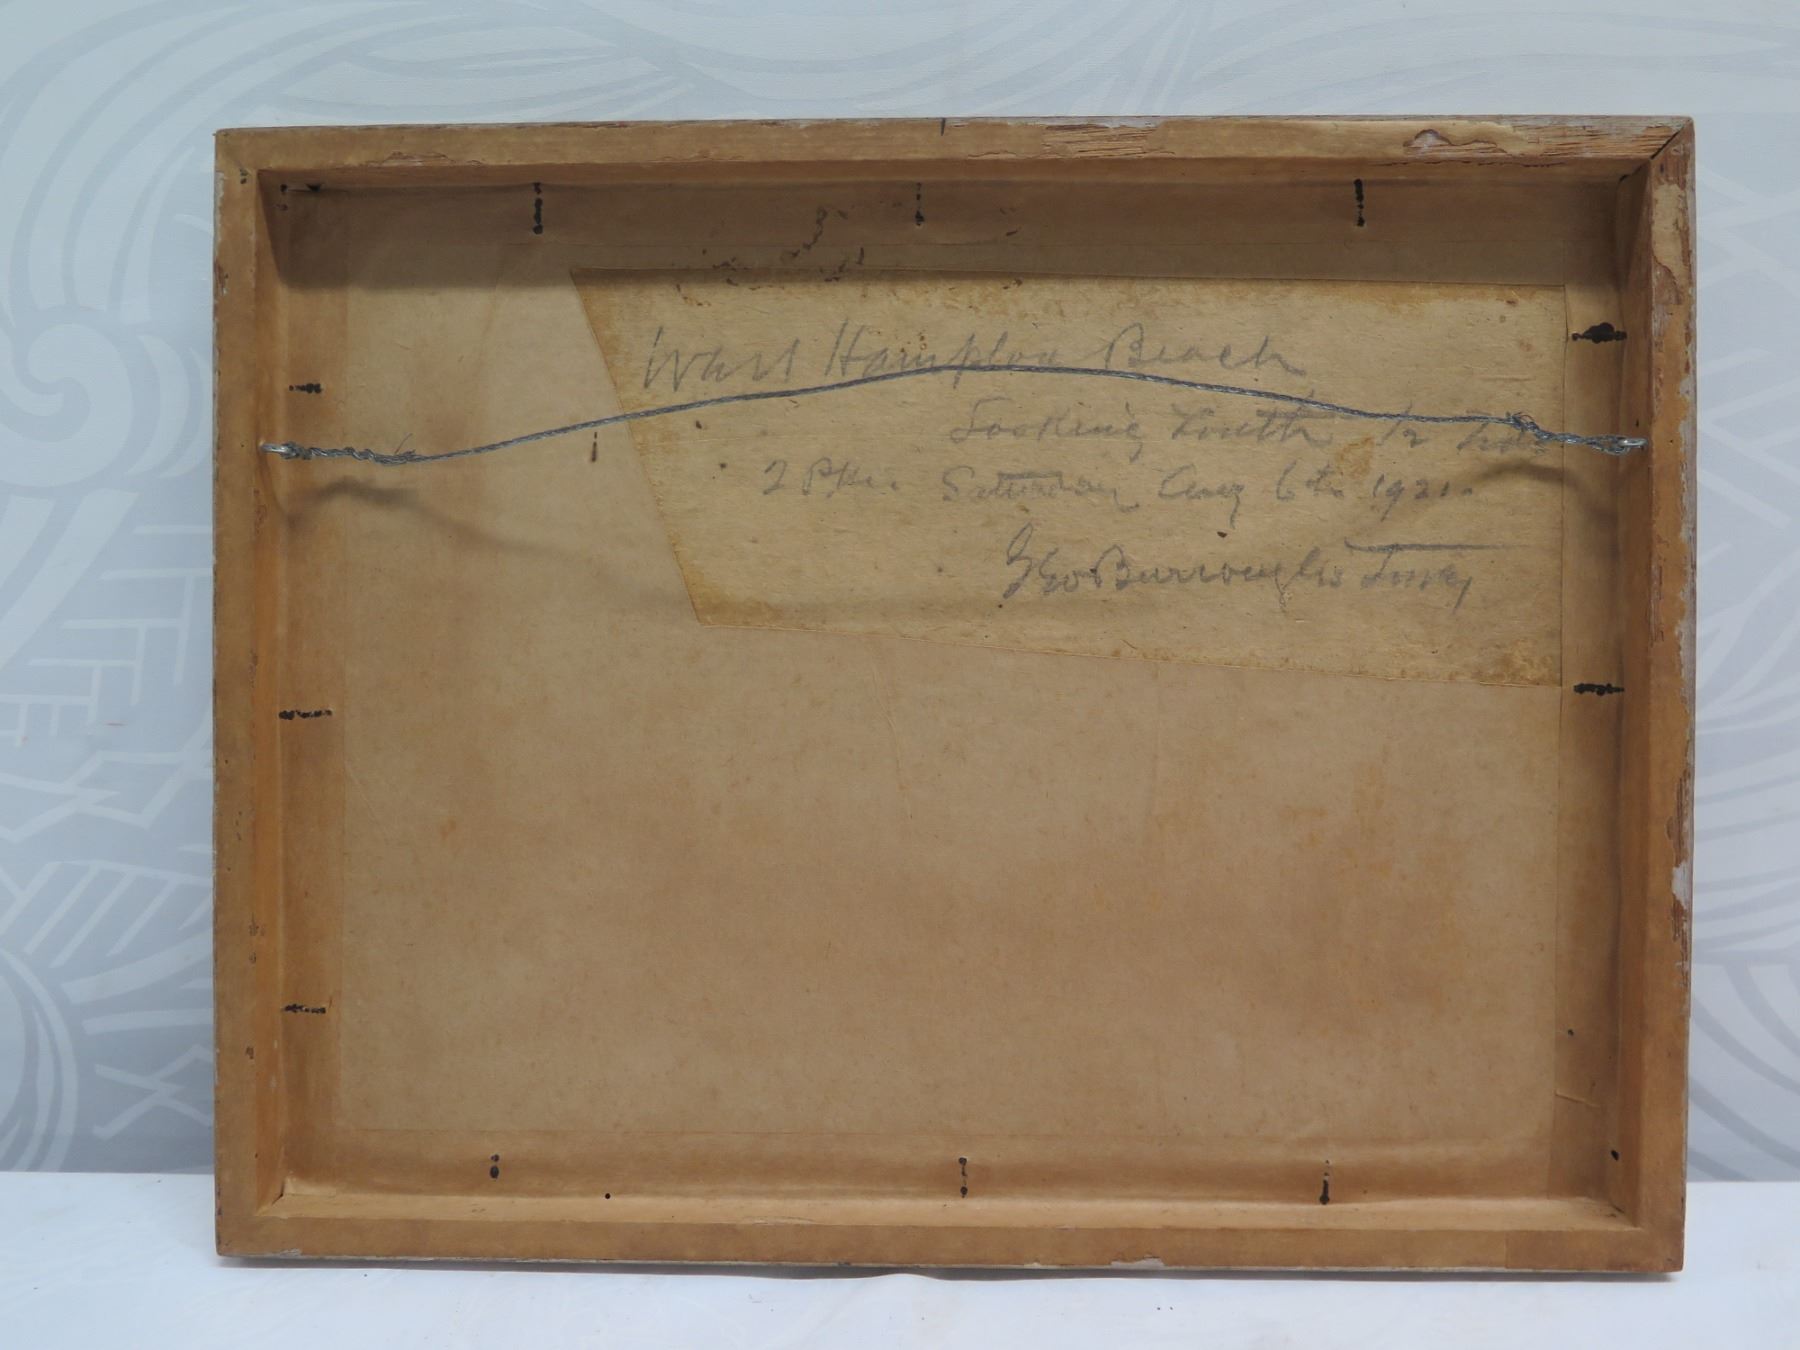 West Hampton Beach
Looking South 1/2 Tide
2 P.M. Saturday Aug 6th 1921.
Geo Burroughs Torrey